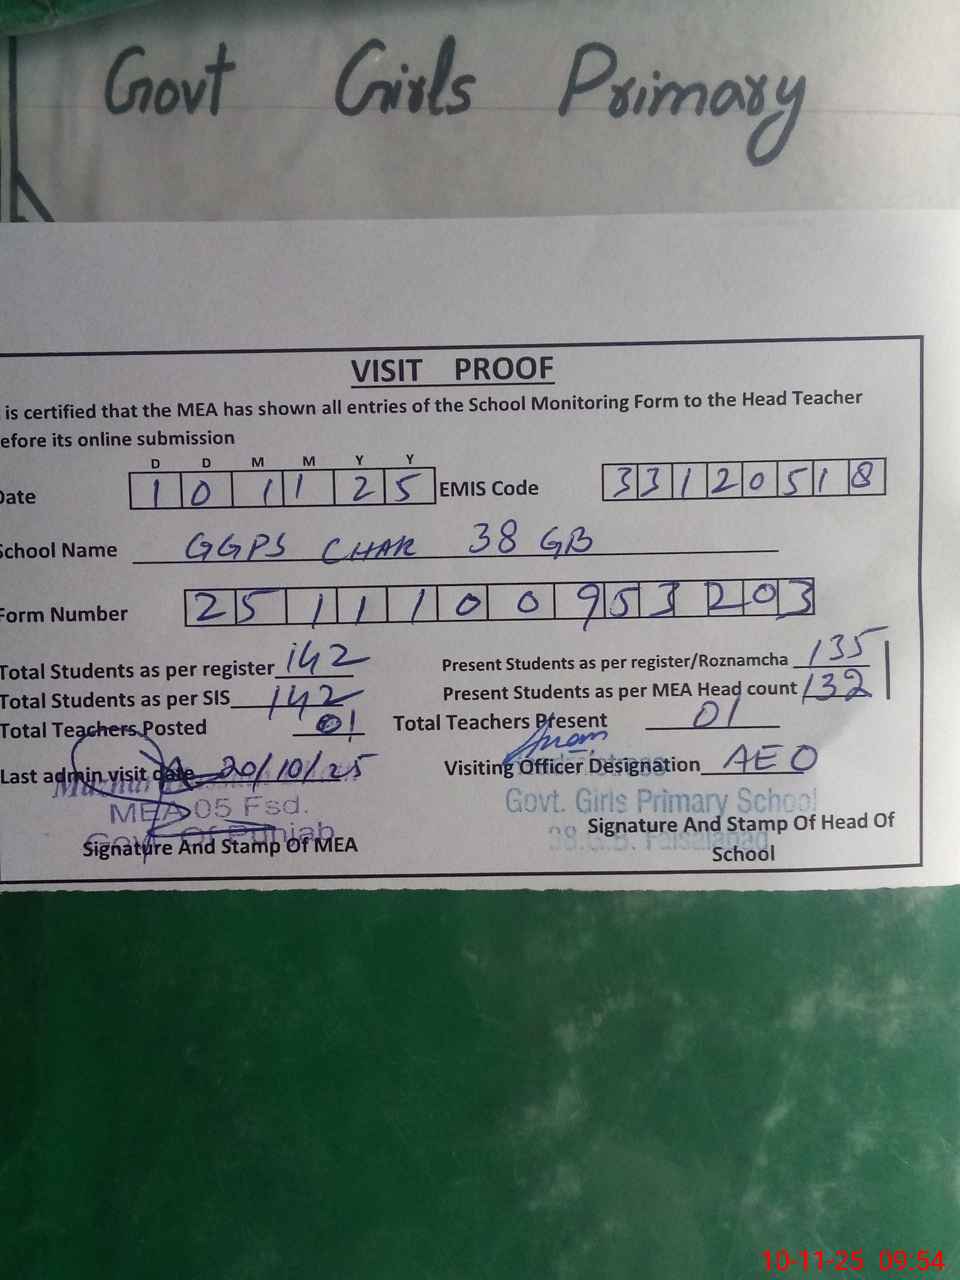 Govt Girls Primary
VISIT PROOF
is certified that the MEA has shown all entries of the School Monitoring Form to the Head Teacher
efore its online submission
D D M M Y Y
Date 10 11 25 EMIS Code 33120518
School Name GGPS CHAK 38 GB
Form Number 2511100953203
Total Students as per register 142 Present Students as per register/Roznamcha 135
Total Students as per SIS 142 Present Students as per MEA Head count 132
Total Teachers Posted 01 Total Teachers Present 01
Last admin visit date 20/10/25 Visiting Officer Designation AEO
MEA 05 Fsd. Govt. Girls Primary School
Govt Of Punjab
Signature And Stamp Of MEA Signature And Stamp Of Head Of
School
G.B. Faisalabad
10-11-25 09:54